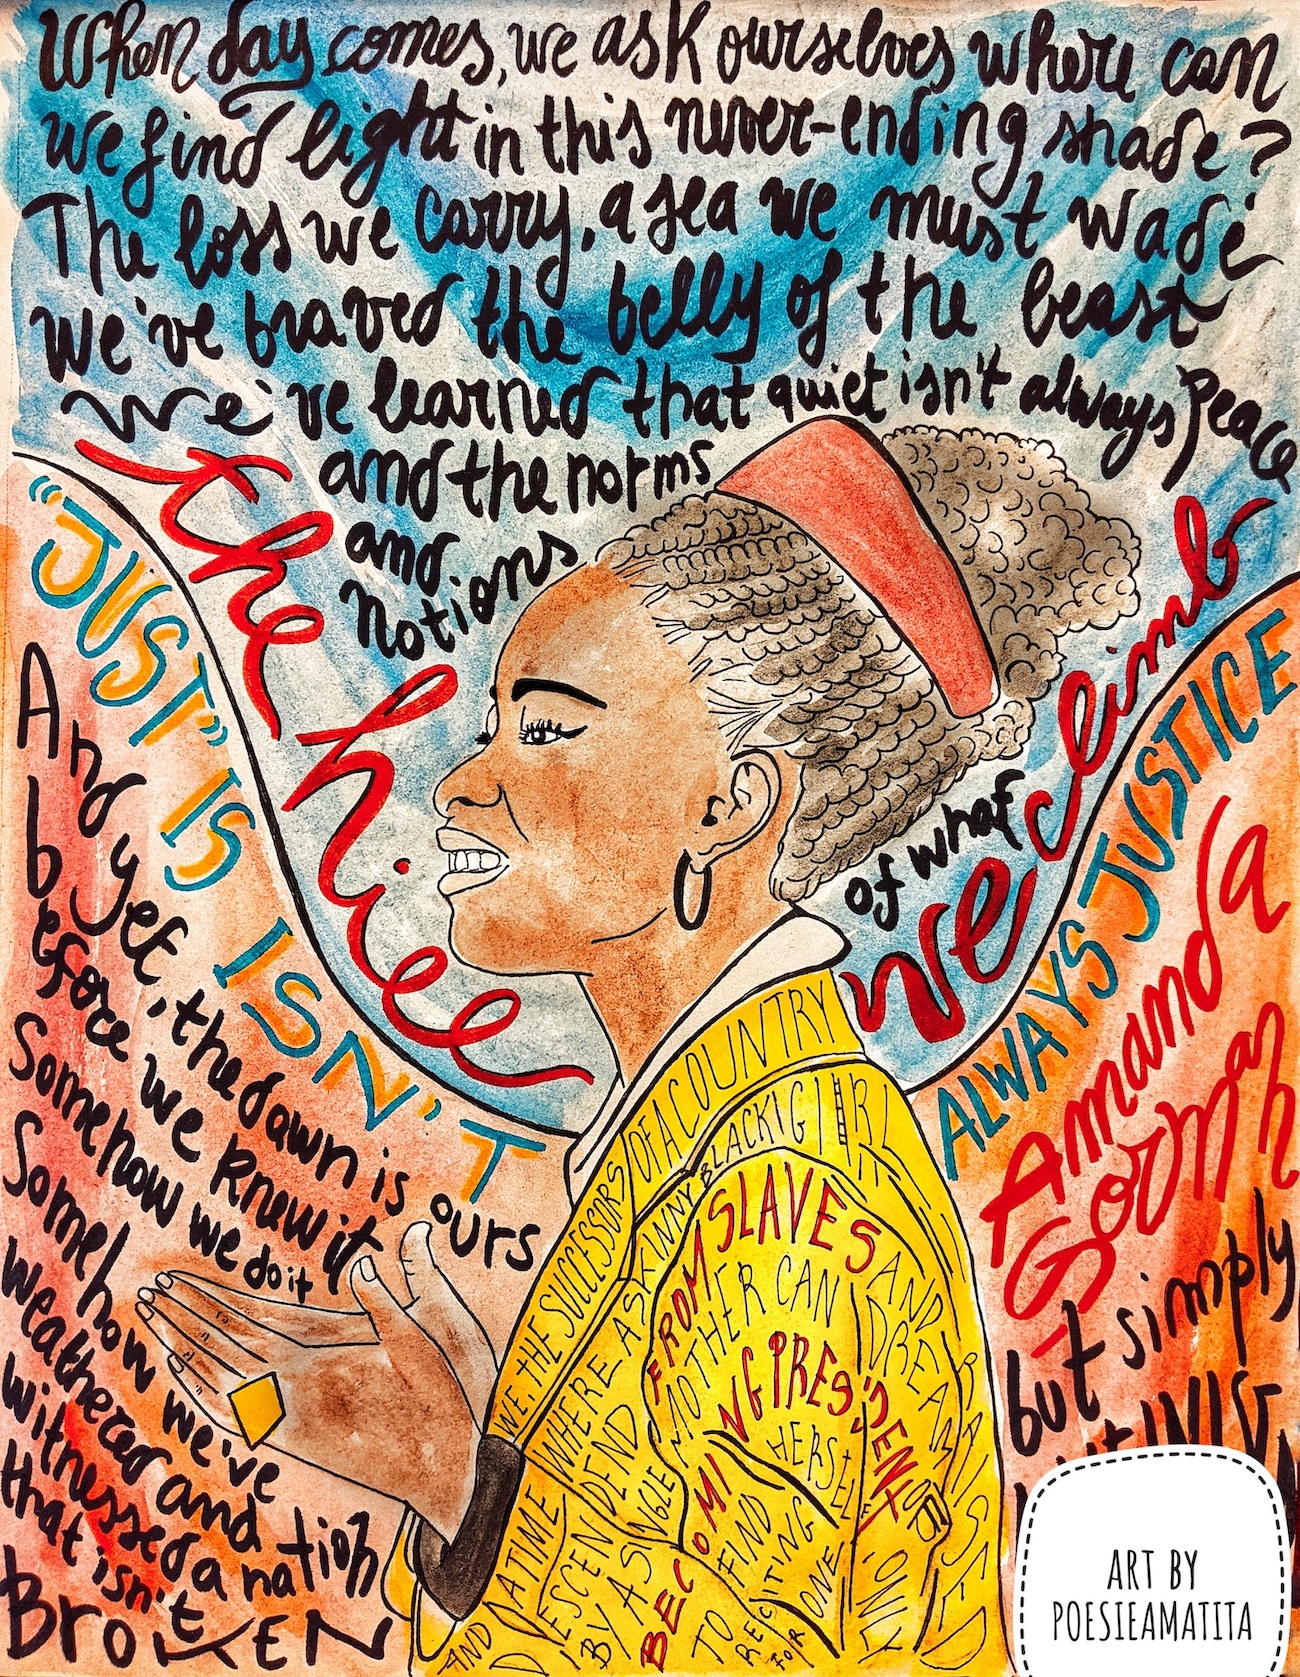 When day comes, we ask ourselves where can
we find light in this never-ending shade?
The loss we carry, a sea we must wade
We've braved the belly of the beast
We've learned that quiet isn't always peace
and the norms
and
notions
of what
"JUST" IS
ISN'T
ALWAYS JUSTICE
And yet, the dawn is ours
before we knew it
Somehow we do it
Somehow we've
weathered and
witnessed a nation
that isn't
BROKEN
but simply
the hill
we climb
Amanda
Gorman
WE THE SUCCESSORS OF A COUNTRY
AND A TIME WHERE A SKINNY BLACK GIRL
DESCENDEND
FROM SLAVES
AND
BY A SINGLE MOTHER CAN
DREAM
RAISED
BECOMING PRESIDENT
ONLY
TO FIND HERSELF
RECITING
FOR ONE
ART BY
POESIEAMATITA